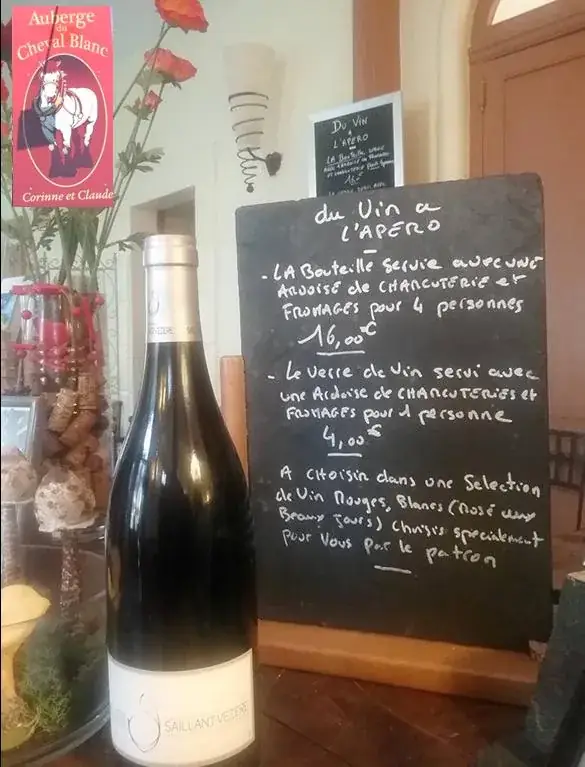 Auberge
du
Cheval Blanc
Corinne et Claude
Du Vin
à
L'APERO
LA Bouteille servie
16
du Vin a
L'APERO
- LA Bouteille servie avec UNE
ARDOISE de CHARCUTERIE et
FROMAGES pour 4 personnes
16,00€
- Le verre de Vin servi avec
une Ardoise de CHARCUTERIES et
FROMAGES pour 1 personne
4,00€
A CHOISIR dans une Selection
de Vin Rouges, Blancs (Rosé aux
Beaux Jours) Choisis specialement
pour Vous par le patron
SAILLANT-VEZERE